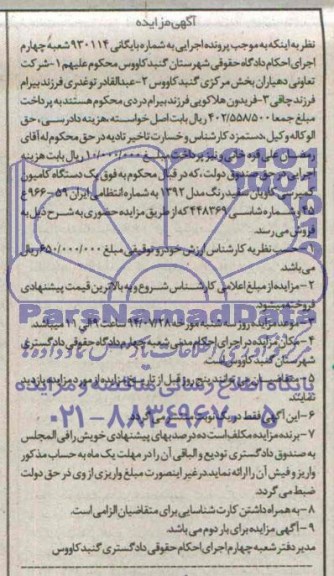 آگهی مزایده
نظر به اینکه به موجب پرونده اجرایی به شماره بایگانی ۹۳۰۱۱۴ شعبه چهارم
اجرای احکام دادگاه حقوقی شهرستان گنبد کاووس محکوم علیهم ۱-شرکت
تعاونی دهیاران بخش مرکزی گنبد کاووس ۲-عبدالقادر توغدری فرزند بیرام
فرزند چاقی ۳-فریدون هلاکویی فرزند بیرام دردی محکوم هستند به پرداخت
مبلغ جمعا ۴۰۲/۵۵۸/۵۰۰ ریال بابت اصل خواسته هزینه دادرسی، حق
الوکاله وکیل، دستمزد کارشناس و خسارت تاخیر تادیه در حق محکوم له آقای
رمضان علی قره خانی و نیز پرداخت مبلغ ۱۰/۰۰۰/۰۰۰ ریال بابت هزینه
اجرایی در حق صندوق دولت، که در قبال محکوم به فوق یک دستگاه کامیون
کمپرسی کاویان سفید رنگ مدل ۱۳۹۲ به شماره انتظامی ایران ۵۹-۹۶۶ع
۴۵ و شماره شاسی ۴۴۸۳۶۹ که از طریق مزایده حضوری به شرح ذیل به
فروش می رسد.
۱- حسب نظریه کارشناس ارزش خودرو توقیفی مبلغ ۶۵۰/۰۰۰/۰۰۰ ریال
می باشد.
۲-مزایده از مبلغ اعلامی کارشناس شروع و به بالاترین قیمت پیشنهادی
فروخته میشود.
۳-موعد مزایده روز سه شنبه مورخه ۹۴/۰۷/۲۸ ساعت ۹ الی ۱۱ میباشد.
۴-مکان مزایده در اجرای احکام مدنی شعبه چهارم دادگاه حقوقی دادگستری
شهرستان گنبد کاووس است.
۵- متقاضیان می توانند پنج روز قبل از تاریخ مزایده از مورد مزایده بازدید
نمایند.
۶-این آگهی فقط در یک نوبت منتشر می گردد.
۷-برنده مزایده مکلف است ده درصد بهای پیشنهادی خویش را فی المجلس
به صندوق دادگستری تودیع و الباقی آن را در مهلت یک ماه به حساب مذکور
واریز و فیش آن را ارائه نماید در غیر اینصورت مبلغ واریزی از وی در حق دولت
ضبط می گردد.
۸-به همراه داشتن کارت شناسایی برای متقاضیان الزامی است.
۹-آگهی مزایده برای بار دوم می باشد.
مدیر دفتر شعبه چهارم اجرای احکام حقوقی دادگستری گنبد کاووس
ParsNamadData
پایگاه اطلاع رسانی مناقصه و مزایده
۰۲۱-۸۸۳۴۹۶۷۰-۵